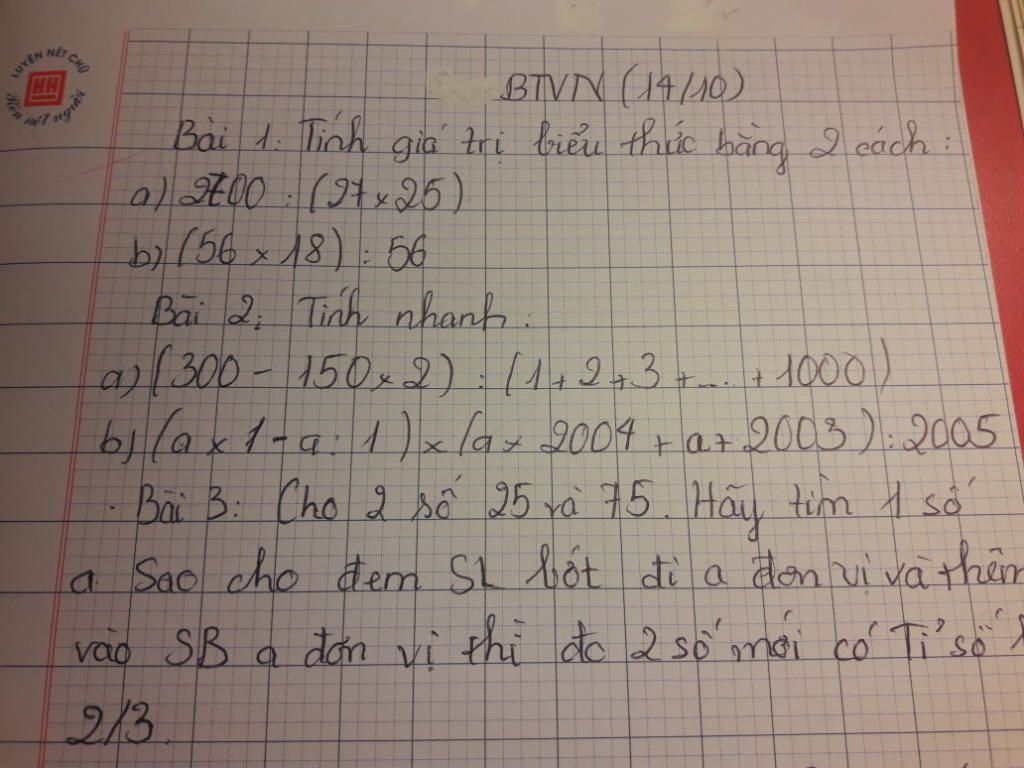 LUYỆN NẾT CHỮ
NH
Rèn nết người
BTVN (14/10)
Bài 1: Tính giá trị biểu thức bằng 2 cách:
a) 2700 : (27 x 25)
b) (56 x 18) : 56
Bài 2: Tính nhanh:
a) (300 - 150 x 2) : (1 + 2 + 3 + ... + 1000)
b) (a x 1 - a : 1) x (a x 2004 + a + 2003) : 2005
Bài 3: Cho 2 số 25 và 75. Hãy tìm 1 số
a sao cho đem SL bớt đi a đơn vị và thêm
vào SB a đơn vị thì đc 2 số mới có tỉ số
2/3.